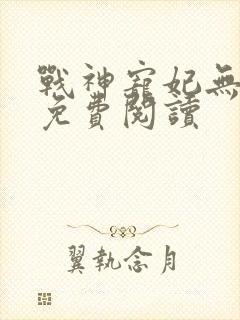 戰神寵妃無
免費閱讀
翼執念月